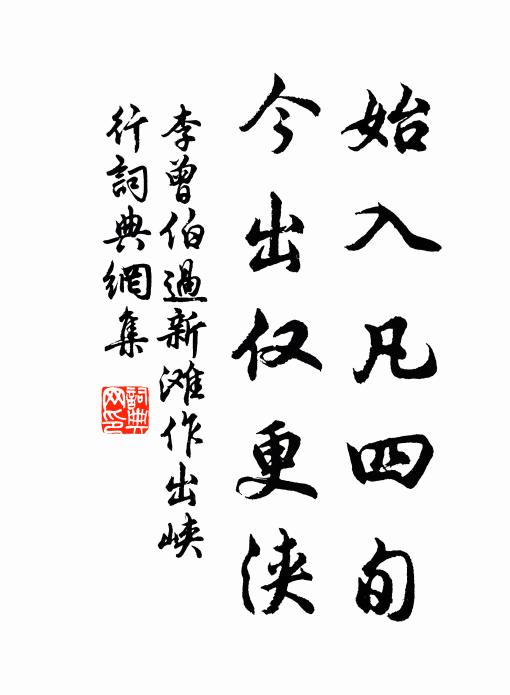 始入凡四旬
今出仅更浃
李曾伯過新滩作出峡
行詞典網集
詞典
网印